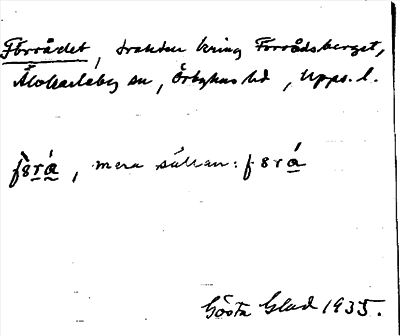 Förrådet, trakten kring Förrådsberget,
Älvkarleby sn, Örbyhus hd, Upps. l.
f8rá, mera sällan: f8rá
Gösta Glad 1935.